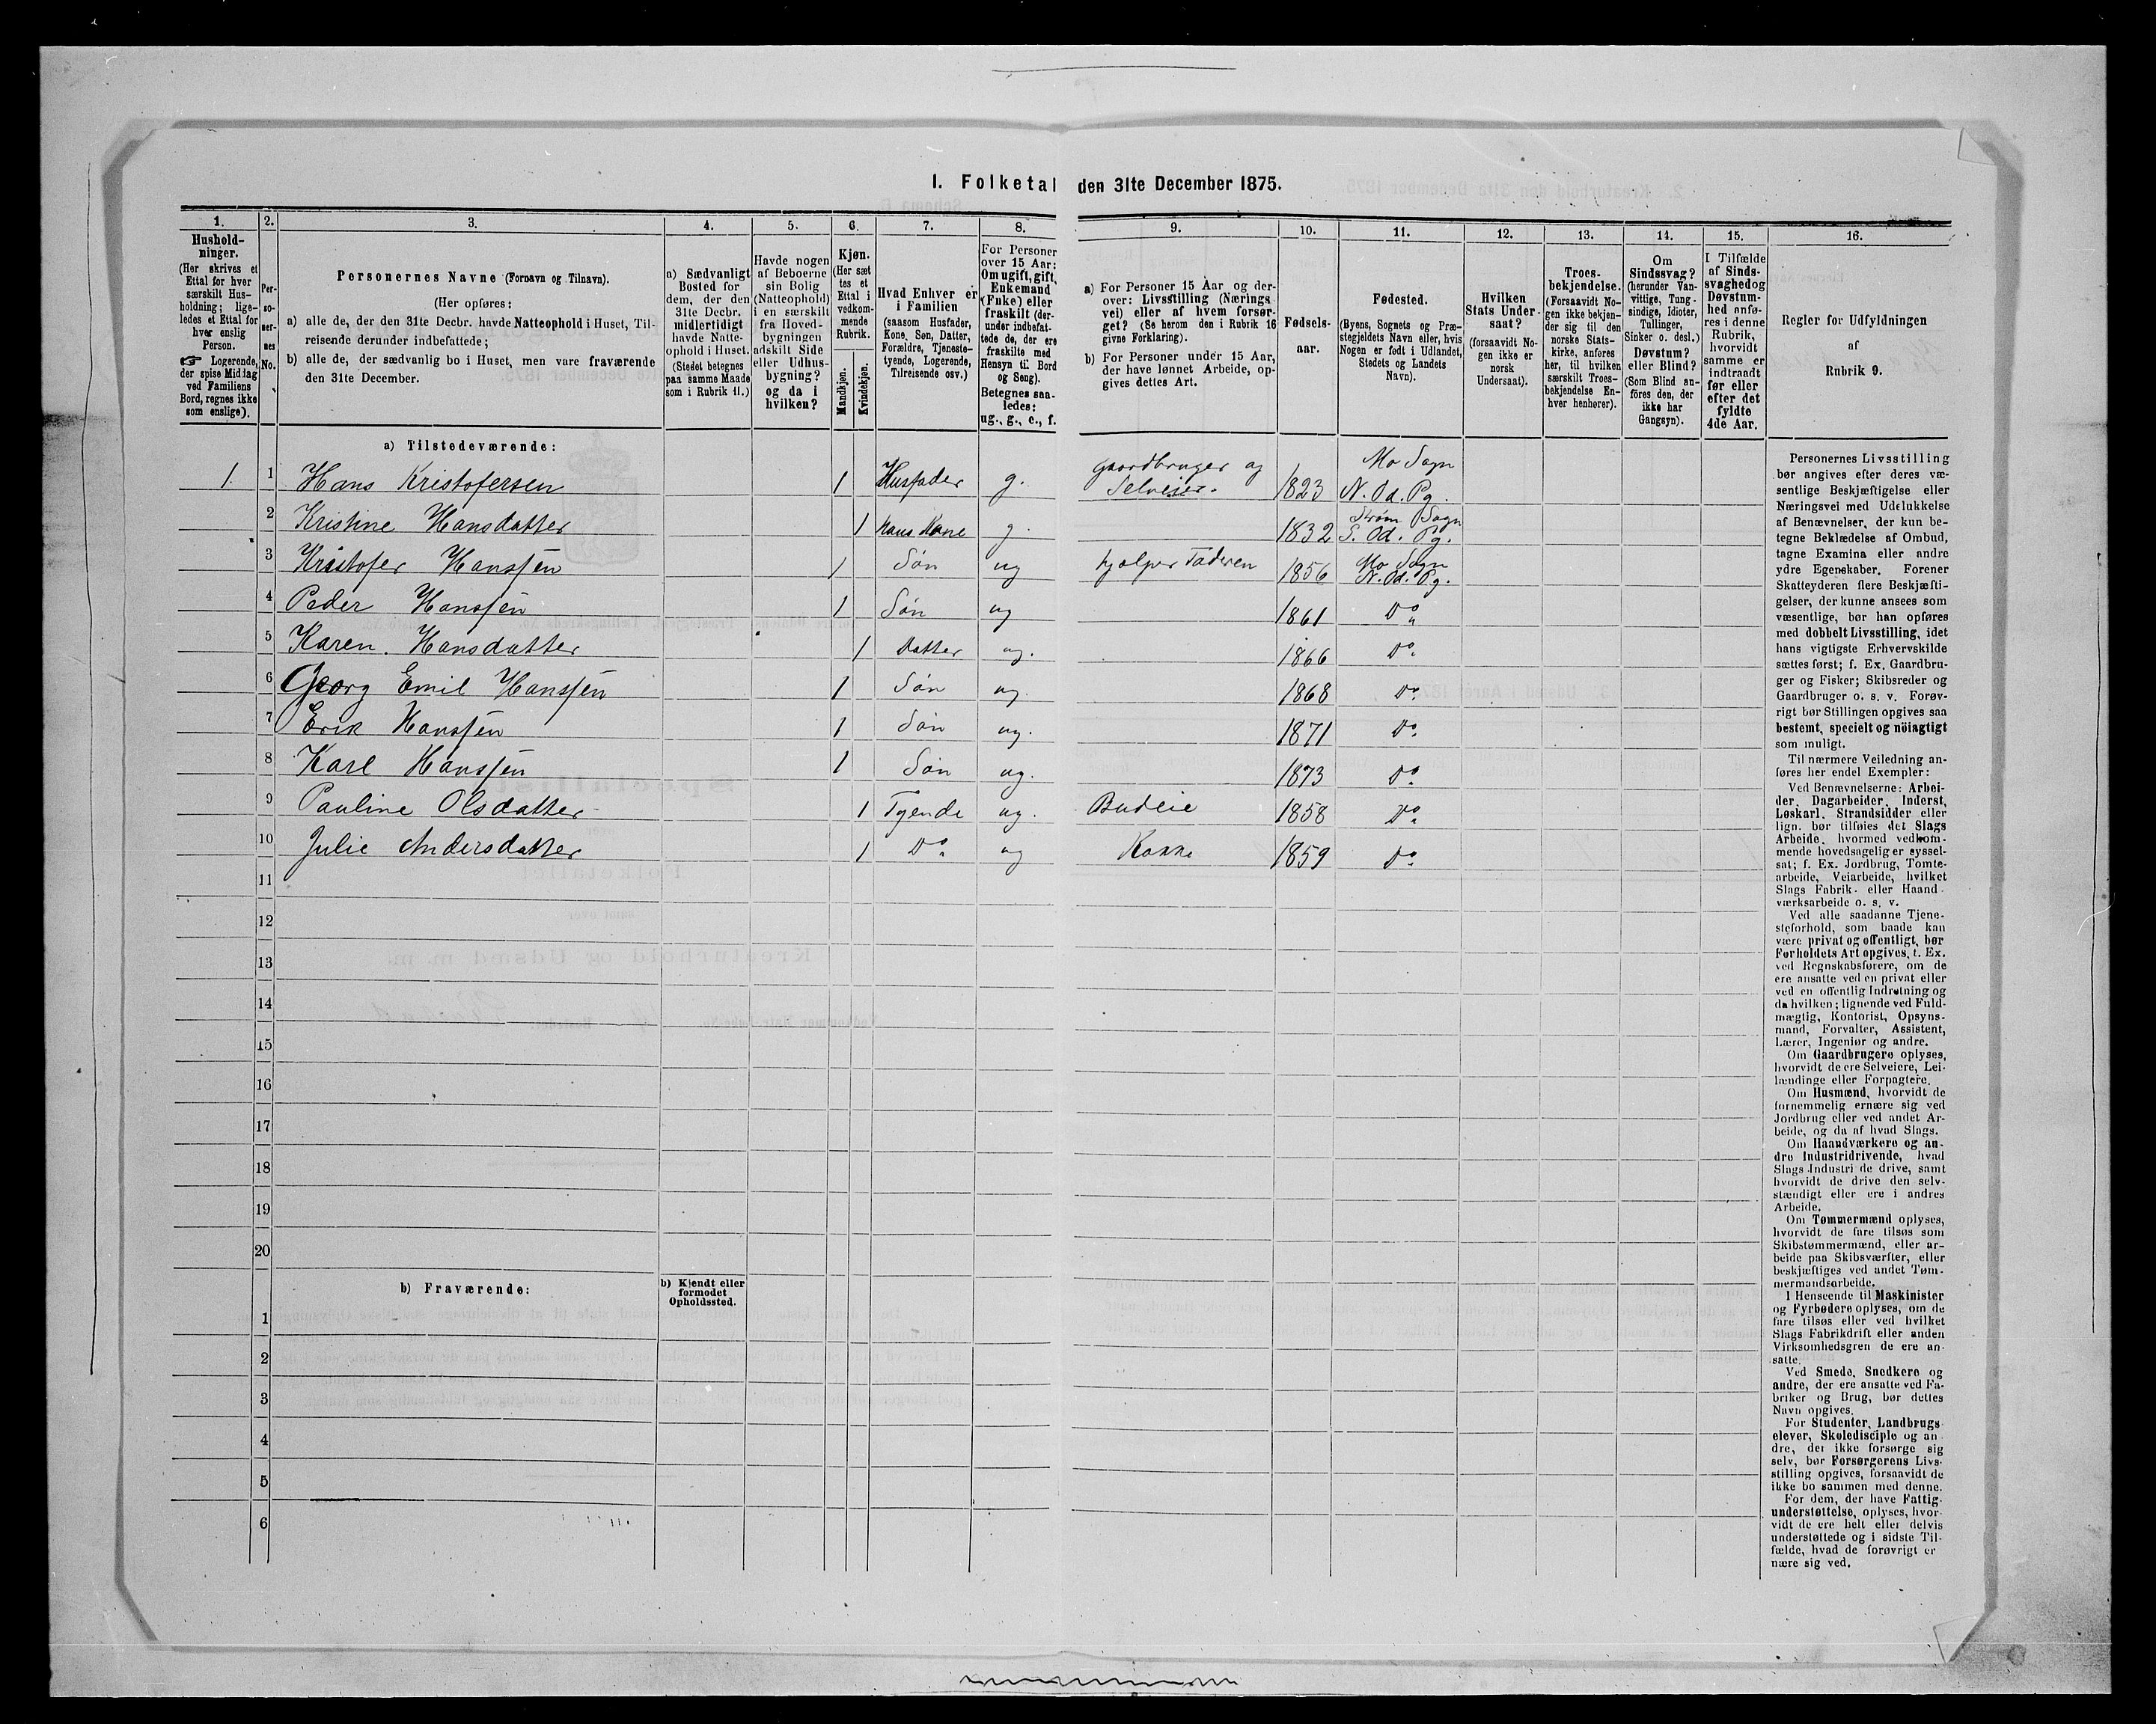 I. Folketal den 31te December 1875.
1.
Hushold-
ninger.
(Her skrives et
Ettal for hver
særskilt Hus-
holdning; lige-
ledes et Ettal for
hver enslig
Person.
☞ Logerende,
der spise Middag
ved Familiens
Bord, regnes ikke
som enslige).
2.
Per-
so-
ner-
nes
No.
3.
Personernes Navne (Fornavn og Tilnavn).
(Her opføres:
a) alle de, der den 31te Decbr. havde Natteophold i Huset, Til-
reisende derunder indbefattede;
b) alle de, der sædvanlig bo i Huset, men vare fraværende
den 31te December.
4.
a) Sædvanligt
Bosted for
dem, der den
31te Decbr.
midlertidigt
havde Natte-
ophold i Huset.
(Stedet betegnes
paa samme Maade
som i Rubrik 11.)
5.
Havde nogen
af Beboerne
sin Bolig
(Natteophold)
i en særskilt
fra Hoved-
bygningen
adskilt Side
eller Udhus-
bygning?
og da i
hvilken?
6.
Kjøn.
(Her sæt
tes et
Ettal i
vedkom-
mende
Rubrik.
Mandkjøn.
Kvindekjøn.
7.
Hvad Enhver er
i Familien
(saasom Husfader,
Kone, Søn, Datter,
Forældre, Tjeneste-
tyende, Logerende,
Tilreisende osv.)
8.
For Personer
over 15 Aar:
Om ugift, gift,
Enkemand
(Enke) eller
fraskilt (der-
under indbefat-
tede de, der ere
fraskilte med
Hensyn til Bord
og Seng).
Betegnes saa-
ledes:
ug., g., e., f.
9.
a) For Personer 15 Aar og der-
over: Livsstilling (Nærings
vei) eller af hvem forsør-
get? (Se herom den i Rubrik 16
givne Forklaring).
b) For Personer under 15 Aar,
der have lønnet Arbeide, op-
gives dettes Art.
10.
Fødsels-
aar.
11.
Fødested.
(Byens, Sognets og Præ-
stegjeldets Navn eller, hvis
Nogen er født i Udlandet,
Stedets og Landets
Navn).
12.
Hvilken
Stats Under-
saat?
(forsaavidt No-
gen ikke er
norsk
Undersaat).
13.
Troes-
bekjendelse.
(Forsaavidt No-
gen ikke bekjen-
der sig til den
norske Stats-
kirke, anføres
her, til hvilken
særskilt Troes-
bekjendelse En-
hver henhører).
14.
Om
Sindssvag?
(herunder Van-
vittige, Tung-
sindige, Idioter,
Tullinger,
Sinker o. desl.)
Døvstum?
eller Blind?
(Som Blind an-
føres den, der
ikke har
Gangsyn).
15.
I Tilfælde
af Sinds-
svaghed og
Døvstum-
hed anfø-
res i denne
Rubrik,
hvorvidt
samme er
indtraadt
før eller
efter det
fyldte
4de Aar.
16.
Regler for Udfyldningen
af
Rubrik 9.
a) Tilstedeværende:
1. 1 Hans Kristofersen 1 Husfader g. Gaardbruger og Selveier. 1823 Mo Sogn N. Od. Pg.
2 Kristine Hansdatter 1 hans Kone g. 1832 Strøm Sogn S. Od. Pg.
3 Kristofer Hanssen 1 Søn ug hjælper Faderen 1856 Mo Sogn N. Od. Pg.
4 Peder Hanssen 1 Søn ug 1861 Do
5 Karen. Hansdatter 1 Datter ug. 1866 Do
6 Georg Emil Hanssen 1 Søn ug. 1868 Do
7 Erik Hanssen 1 Søn ug. 1871 Do
8 Karl Hanssen 1 Søn ug. 1873 Do
9 Pauline Olsdatter 1 Tyende ug. Budeie 1858 Do
10 Julie Andersdatter 1 Do ug Kokke 1859 Do
11
12
13
14
15
16
17
18
19
20
b) Fraværende:
b) Kjendt eller
formodet
Opholdssted.
1
2
3
4
5
6
Personernes Livsstilling
bør angives efter deres væ-
sentlige Beskjæftigelse eller
Næringsvei med Udelukkelse
af Benævnelser, der kun be-
tegne Beklædelse af Ombud,
tagne Examina eller andre
ydre Egenskaber. Forener
Skatteyderen flere Beskjæfti-
gelser, der kunne ansees som
væsentlige, bør han opføres
med dobbelt Livsstilling, idet
hans vigtigste Erhvervskilde
sættes først; f. Ex. Gaardbru-
ger og Fisker; Skibsreder og
Gaardbruger o. s. v. Forøv-
rigt bør Stillingen opgives saa
bestemt, specielt og nöiagtigt
som muligt.
Til nærmere Veiledning an-
føres her endel Exempler:
Ved Benævnelserne: Arbei-
der, Dagarbeider, Inderst,
Løskarl, Strandsidder eller
lign. bør tilføies det Slags
Arbeide, hvormed vedkom-
mende hovedsagelig er syssel-
sat; f. Ex. Jordbrug, Tomte-
arbeide, Veiarbeide, hvilket
Slags Fabrik- eller Haand-
værksarbeide o. s. v.
Ved alle saadanne Tjene-
steforhold, som baade kan
være privat og offentligt, bør
Forholdets Art opgives, t. Ex.
ved Regnskabsførere, om de
ere ansatte ved en privat eller
ved en offentlig Indretning og
da hvilken; lignende ved Fuld-
mægtig, Kontorist, Opsyns-
mand, Forvalter, Assistent,
Lærer, Ingeniør og andre.
Om Gaardbrugere oplyses,
hvorvidt de ere Selveiere, Lei-
lændinge eller Forpagtere.
Om Husmænd, hvorvidt de
fornemmelig ernære sig ved
Jordbrug eller ved andet Ar-
beide, og da af hvad Slags.
Om Haandværkere og an-
dre Industridrivende, hvad
Slags Industri de drive, samt
hvorvidt de drive den selv-
stændigt eller ere i andres
Arbeide.
Om Tømmermænd oplyses,
hvorvidt de fare tilsøs som
Skibstømmermænd, eller ar-
beide paa Skibsværfter, eller
beskjæftiges ved andet Tøm-
mermandsarbeide.
I Henseende til Maskinister
og Fyrbødere oplyses, om de
fare tilsøs eller ved hvilket
Slags Fabrikdrift eller anden
Virksomhedsgren de ere an-
satte.
Ved Smede, Snedkere og
andre, der ere ansatte ved Fa-
briker og Brug, bør dettes
Navn opgives.
For Studenter, Landbrugs
elever, Skoledisciple og an
dre, der ikke forsørge sig
selv, bør Forsørgerens Livs-
stilling opgives, forsaavidt de
ikke bo sammen med denne.
For dem, der have Fattig-
understøttelse, oplyses, hvor-
vidt de ere helt eller delvis
understøttede og i sidste Til-
fælde, hvad de forøvrigt er
nære sig ved.